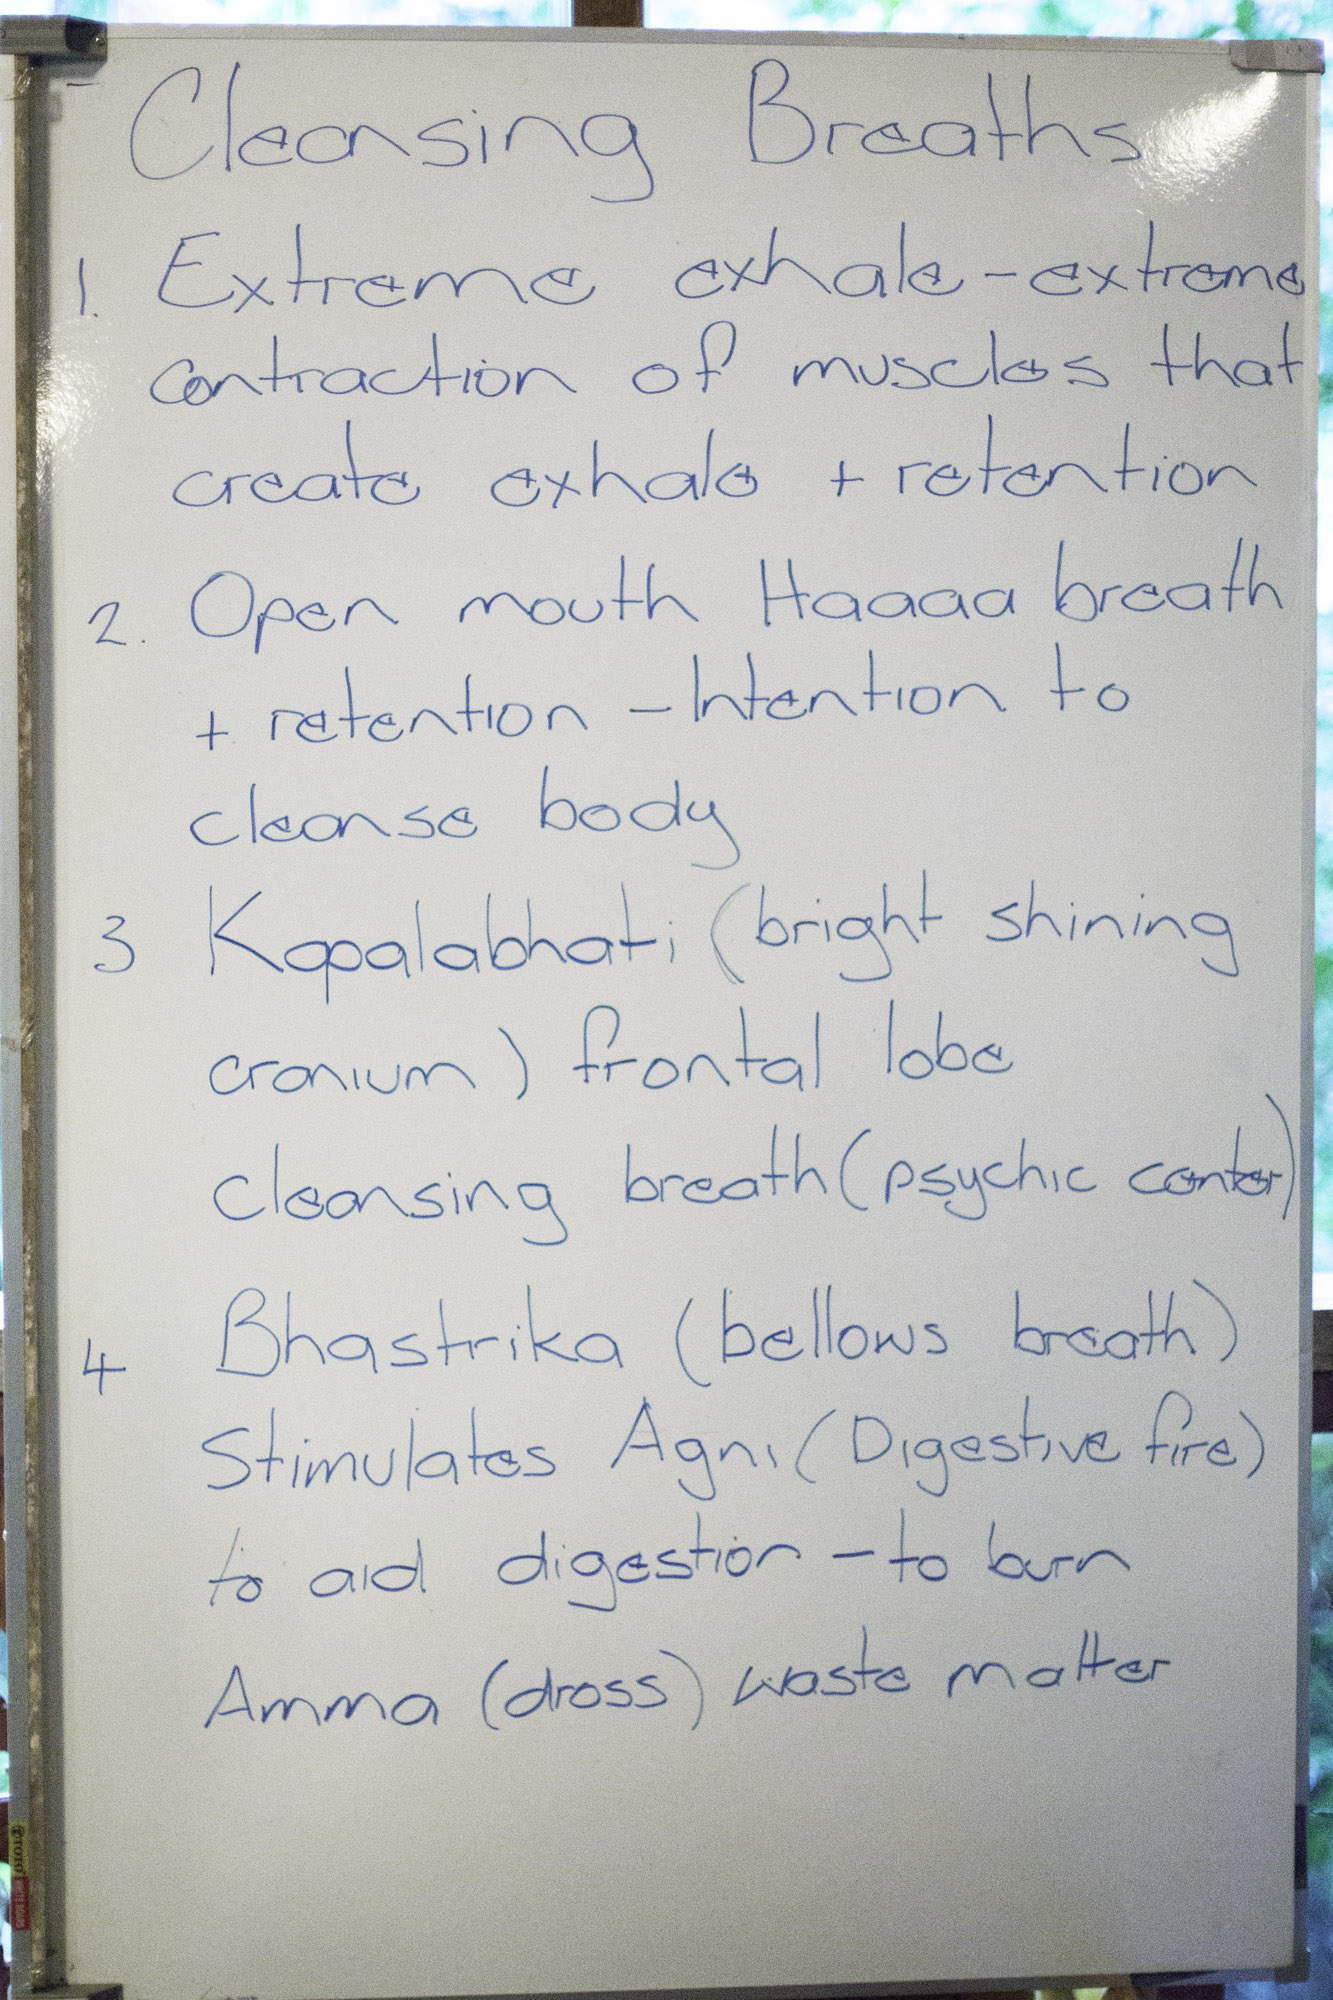 Cleansing Breaths
1. Extreme exhale - extreme
contraction of muscles that
create exhale + retention
2. Open mouth Haaaa breath
+ retention - Intention to
cleanse body
3 Kapalabhati (bright shining
cranium) frontal lobe
cleansing breath (psychic center)
4 Bhastrika (bellows breath)
Stimulates Agni (Digestive fire)
to aid digestion - to burn
Amma (dross) waste matter